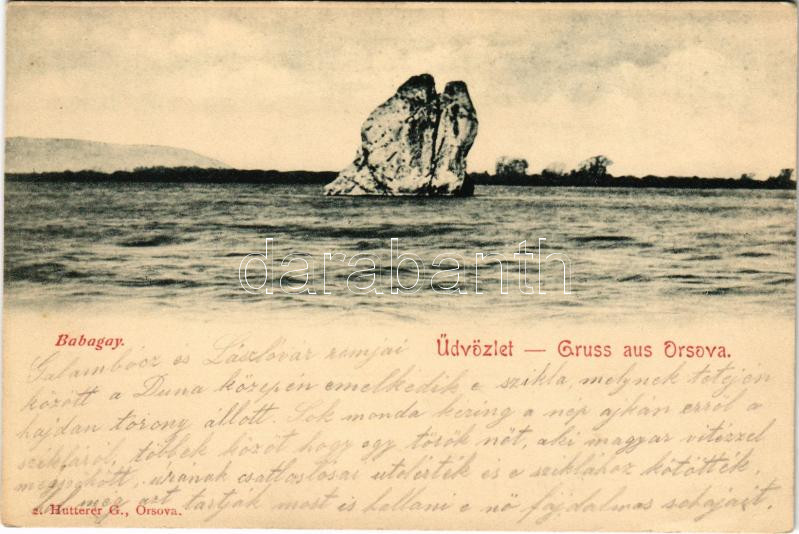 darabanth
Babagay.
Üdvözlet — Gruss aus Orsova.
Galambócz és Lászlóvár romjai
között a Duna közepén emelkedik e szikla, melynek tetején
hajdan torony állott. Sok monda kering a nép ajkán erről a
szikláról, többek közöt hogy egy török nőt, aki magyar vitézzel
megszökött, urának csatlósai utolérték és e sziklához kötötték,
hol még azt tartják most is hallani e nő fájdalmas sohaját.
2. Hutterer G., Orsova.